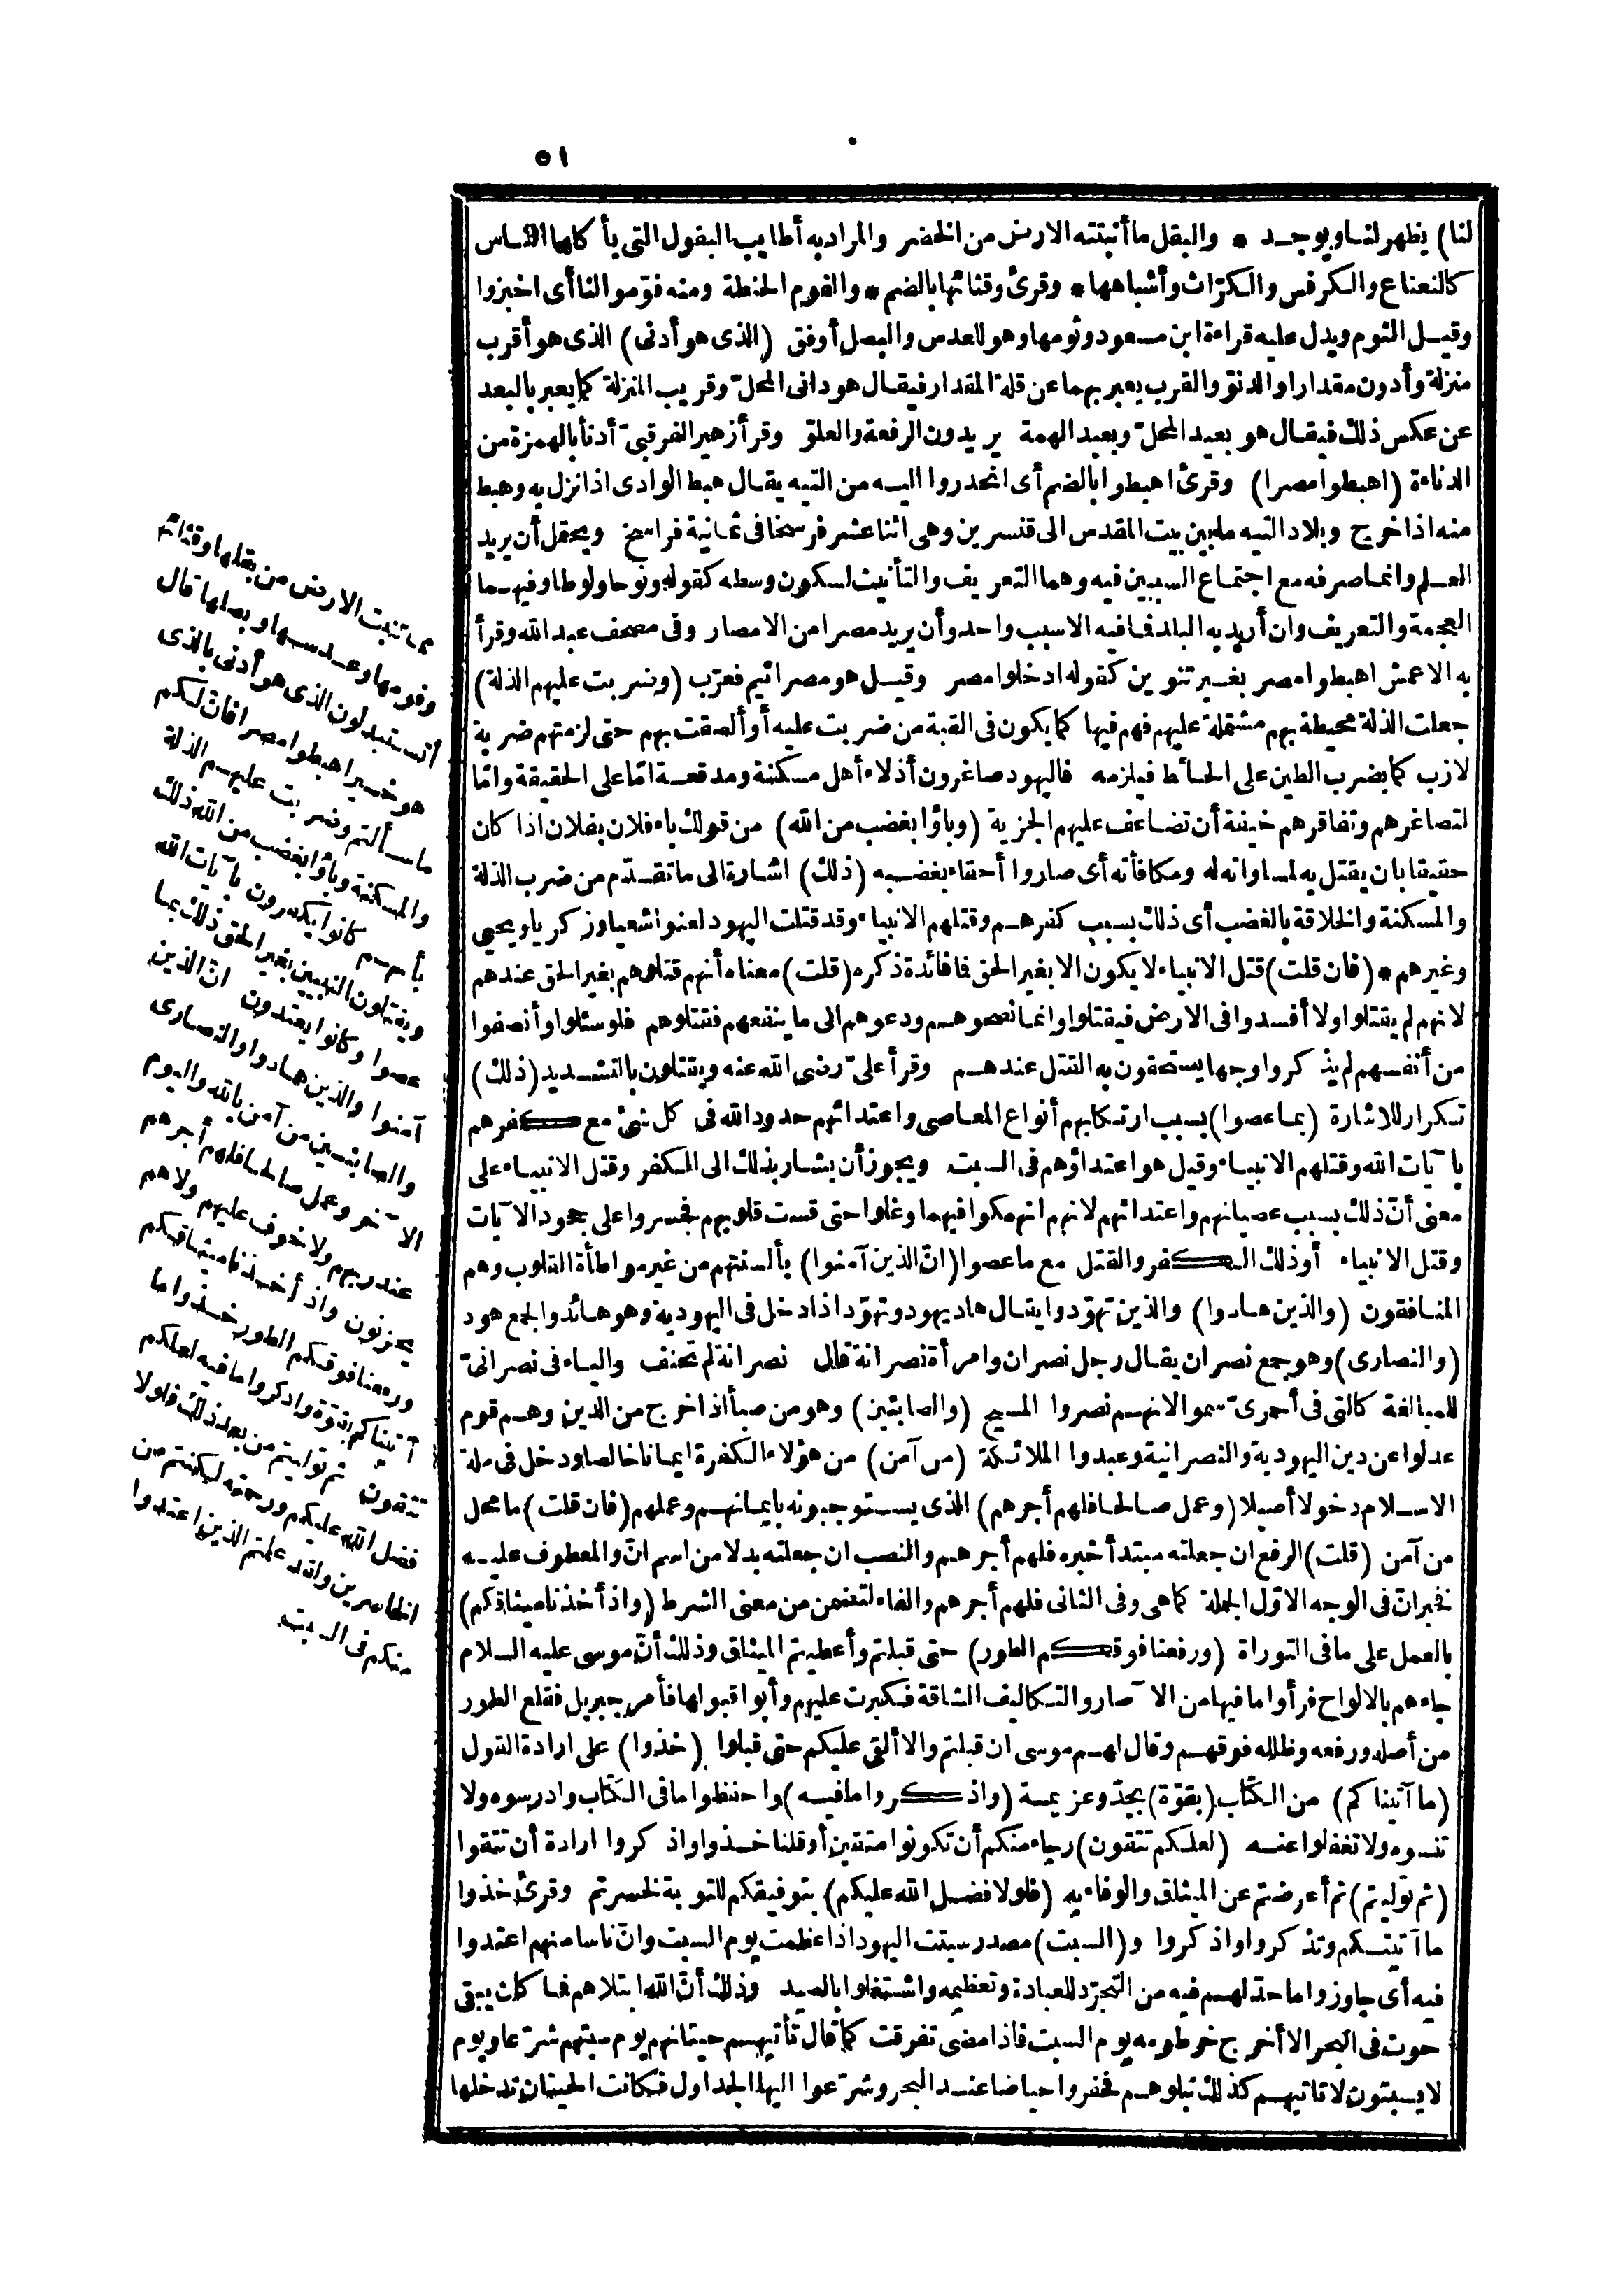 ٥١
لنا) يظهر لنا ويوجد * والبقل ما أنبتته الارض من الخضر والمراد به أطايب البقول التى يأكلها الناس
كالنعناع والكرفس والكرّاث وأشباهها * وقرئ وقثائها بالضم * والفوم الحنطة ومنه فوّموا لنا أى اخبزوا
وقيل الثوم ويدل عليه قراءة ابن مسعود وثومها وهو للعدس والبصل أوفق (الذى هو أدنى) الذى هو أقرب
منزلة وأدون مقدارا والدنوّ والقرب يعبر بهما عن قلة المقدار فيقال هو دانى المحلّ وقريب المنزلة كما يعبر بالبعد
عن عكس ذلك فيقال هو بعيد المحلّ وبعيد الهمة يريدون الرفعة والعلوّ وقرأ زهير الفرقبىّ أدنأ بالهمزة من
الدناءة (اهبطوا مصرا) وقرئ اهبطوا بالضم أى انحدروا اليه من التيه يقال هبط الوادى اذا نزل به وهبط
منه اذا خرج وبلاد التيه ما بين بيت المقدس الى قنسرين وهى اثنا عشر فرسخا فى ثمانية فراسخ ويحتمل أن يريد
العلم وانما صرفه مع اجتماع السببين فيه وهما التعريف والتأنيث لسكون وسطه كقوله ونوحا ولوطا وفيهما
العجمة والتعريف وان أريد به البلد فما فيه الا سبب واحد وأن يريد مصرا من الامصار وفى مصحف عبد الله وقرأ
به الاعمش اهبطوا مصر بغير تنوين كقوله ادخلوا مصر وقيل هو مصرائيم فعرّب (وضربت عليهم الذلة)
جعلت الذلة محيطة بهم مشتملة عليهم فهم فيها كما يكون فى القبة من ضربت عليه أو ألصقت بهم حتى لزمتهم ضربة
لازب كما يضرب الطين على الحائط فيلزمه فاليهود صاغرون أذلاء أهل مسكنة ومدقعة امّا على الحقيقة وامّا
لتصاغرهم وتفاقرهم خيفة أن تضاعف عليهم الجزية (وباؤا بغضب من الله) من قولك باء فلان بفلان اذا كان
حقيقا بان يقتل به لمساواته له ومكافأته أى صاروا أحقاء بغضبه (ذلك) اشارة الى ما تقدّم من ضرب الذلة
والمسكنة والخلاقة بالغضب أى ذلك بسبب كفرهم وقتلهم الانبياء وقد قتلت اليهود لعنوا شعيا وزكريا ويحيى
وغيرهم * (فان قلت) قتل الانبياء لا يكون الا بغير الحق فما فائدة ذكره (قلت) معناه أنهم قتلوهم بغير الحق عندهم
لانهم لم يقتلوا ولا أفسدوا فى الارض فيقتلوا وانما نصحوهم ودعوهم الى ما ينفعهم فقتلوهم فلو سئلوا وأنصفوا
من أنفسهم لم يذكروا وجها يستحقون به القتل عندهم وقرأ علىّ رضى الله عنه ويقتلون بالتشديد (ذلك)
تكرار للاشارة (بما عصوا) بسبب ارتكابهم أنواع المعاصى واعتدائهم حدود الله فى كل شئ مع كفرهم
بآيات الله وقتلهم الانبياء وقيل هو اعتداؤهم فى السبت ويجوز أن يشار بذلك الى الكفر وقتل الانبياء على
معنى أنّ ذلك بسبب عصيانهم واعتدائهم لانهم انهمكوا فيهما وغلوا حتى قست قلوبهم فجسروا على جحود الآيات
وقتل الانبياء أو ذلك الكفر والقتل مع ما عصوا (انّ الذين آمنوا) بألسنتهم من غير مواطأة القلوب وهم
المنافقون (والذين هادوا) والذين تهوّدوا يقال هاد يهود وتهوّد اذا دخل فى اليهودية وهو هائد والجمع هود
(والنصارى) وهو جمع نصران يقال رجل نصران وامرأة نصرانة قال نصرانة لم تحنف والياء فى نصرانىّ
للمبالغة كالتى فى أحمرىّ سموا لانهم نصروا المسيح (والصابئين) وهو من صبأ اذا خرج من الدين وهم قوم
عدلوا عن دين اليهودية والنصرانية وعبدوا الملائكة (من آمن) من هؤلاء الكفرة ايمانا خالصا ودخل فى ملة
الاسلام دخولا أصيلا (وعمل صالحا فلهم أجرهم) الذى يستوجبونه بايمانهم وعملهم (فان قلت) ما محل
من آمن (قلت) الرفع ان جعلته مبتدأ خبره فلهم أجرهم والنصب ان جعلته بدلا من اسم انّ والمعطوف عليه
فخبر انّ فى الوجه الاوّل الجملة كما هى وفى الثانى فلهم أجرهم والفاء لتضمن من معنى الشرط (واذ أخذنا ميثاقكم)
بالعمل على ما فى التوراة (ورفعنا فوقكم الطور) حتى قبلتم وأعطيتم الميثاق وذلك أنّ موسى عليه السلام
جاءهم بالالواح فرأوا ما فيها من الآصار والتكاليف الشاقة فكبرت عليهم وأبوا قبولها فأمر جبريل فقلع الطور
من أصله ورفعه وظلله فوقهم وقال لهم موسى ان قبلتم والا ألقى عليكم حتى قبلوا (خذوا) على ارادة القول
(ما آتيناكم) من الكتاب (بقوّة) بجدّ وعزيمة (واذكروا ما فيه) واحفظوا ما فى الكتاب وادرسوه ولا
تنسوه ولا تغفلوا عنه (لعلكم تتقون) رجاء منكم أن تكونوا متقين أو قلنا خذوا واذكروا ارادة أن تتقوا
(ثم توليتم) ثم أعرضتم عن الميثاق والوفاء به (فلولا فضل الله عليكم) بتوفيقكم للتوبة لخسرتم وقرئ خذوا
ما آتيتكم وتذكروا واذكروا و(السبت) مصدر سبتت اليهود اذا عظمت يوم السبت وانّ ناسا منهم اعتدوا
فيه أى جاوزوا ما حدّ لهم فيه من التجرّد للعبادة وتعظيمه واشتغلوا بالصيد وذلك أنّ الله ابتلاهم فما كان يبقى
حوت فى البحر الا أخرج خرطومه يوم السبت فاذا مضى تفرقت كما قال تأتيهم حيتانهم يوم سبتهم شرّعا ويوم
لا يسبتون لا تأتيهم كذلك نبلوهم فحفروا حياضا عند البحر وشرّعوا اليها الجداول فكانت الحيتان تدخلها
مما تنبت الارض من بقلها وقثائها
وفومها وعدسها وبصلها قال
أتستبدلون الذى هو أدنى بالذى
هو خير اهبطوا مصرا فانّ لكم
ما سألتم وضربت عليهم الذلة
والمسكنة وباؤا بغضب من الله ذلك
بأنهم كانوا يكفرون بآيات الله
ويقتلون النبيين بغير الحق ذلك بما
عصوا وكانوا يعتدون انّ الذين
آمنوا والذين هادوا والنصارى
والصابئين من آمن بالله واليوم
الآخر وعمل صالحا فلهم أجرهم
عند ربهم ولا خوف عليهم ولا هم
يحزنون واذ أخذنا ميثاقكم
ورفعنا فوقكم الطور خذوا ما
آتيناكم بقوّة واذكروا ما فيه لعلكم
تتقون ثم توليتم من بعد ذلك فلولا
فضل الله عليكم ورحمته لكنتم من
الخاسرين ولقد علمتم الذين اعتدوا
منكم فى السبت